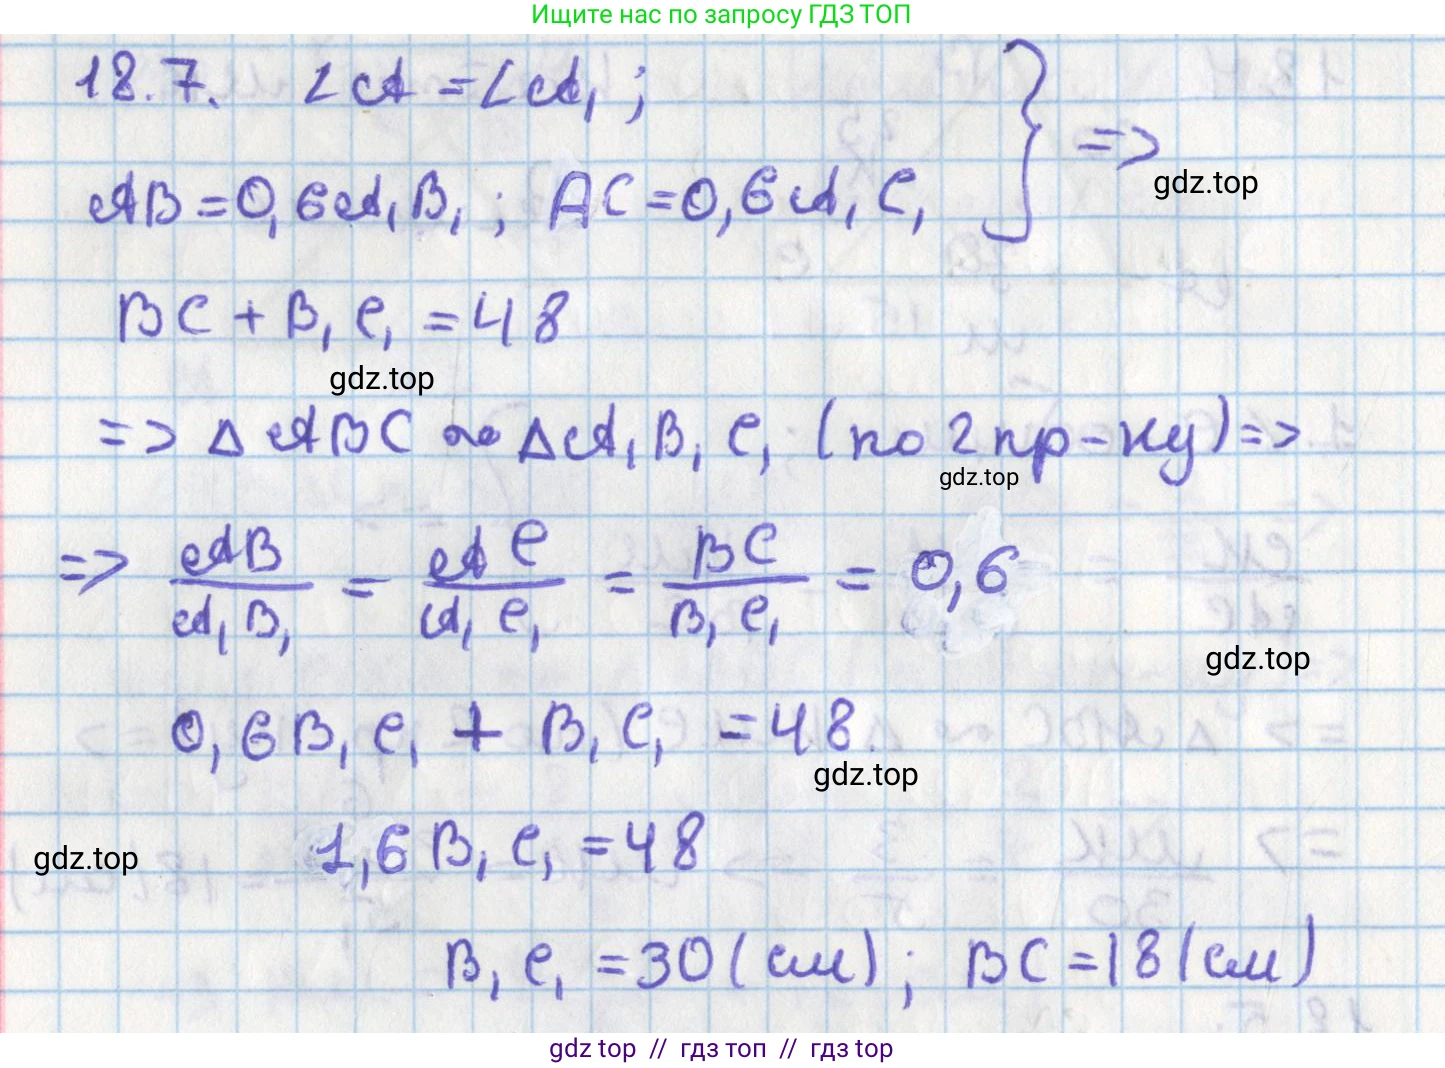 Ищите нас по запросу ГДЗ ТОП
18.7. ∠A = ∠A₁ ;
AB = 0,6A₁B₁ ; AC = 0,6A₁C₁ } =>
gdz.top
BC + B₁C₁ = 48
gdz.top
=> Δ ABC ∾ Δ A₁B₁C₁ (по 2 пр-ку) =>
gdz.top
=> AB/A₁B₁ = AC/A₁C₁ = BC/B₁C₁ = 0,6
gdz.top
0,6B₁C₁ + B₁C₁ = 48.
gdz.top
1,6B₁C₁ = 48
gdz.top
B₁C₁ = 30 (см) ; BC = 18 (см)
gdz top // гдз топ // гдз top